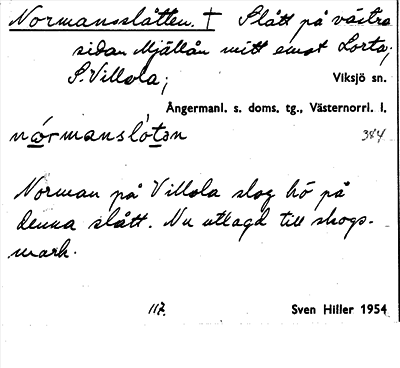 Normansslåtten. † Slått på västra
sidan Mjällån mitt emot Lorta;
S. Villola;
Viksjö sn.
Ångermanl. s. doms. tg., Västernorrl. l.
384
Norman på Villola slog hö på
denna slått. Nu utlagd till skogs-
mark.
117.
Sven Hiller 1954